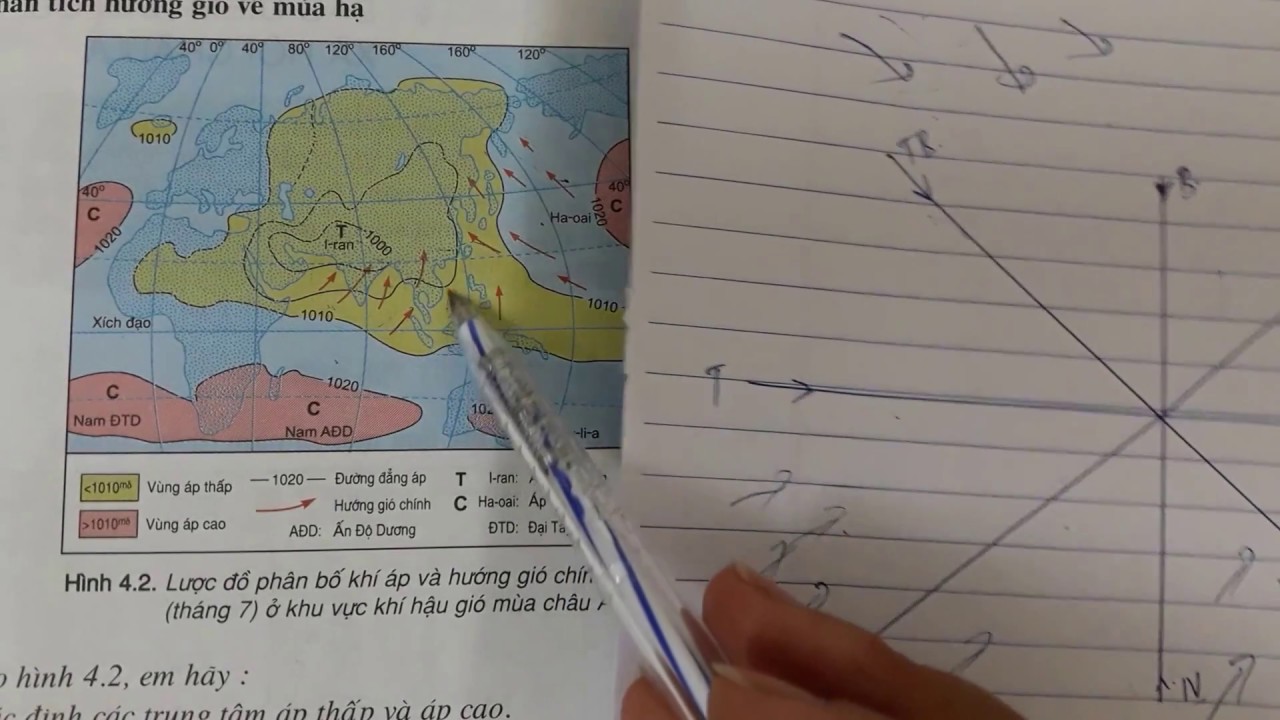 tích hướng gió về mùa hạ
40° 0° 40° 80° 120° 160° 160° 120°
1010
40°
C
1020
40°
C
1020
Ha-oai
T
I-ran
1000
1010
1010
Xích đạo
C
Nam ĐTD
1020
C
Nam AĐD
-li-a
<1010mb Vùng áp thấp
—1020— Đường đẳng áp
T I-ran:
>1010mb Vùng áp cao
Hướng gió chính
C Ha-oai: Áp
AĐD: Ấn Độ Dương
ĐTD: Đại
Hình 4.2. Lược đồ phân bố khí áp và hướng gió
(tháng 7) ở khu vực khí hậu gió mùa châu
hình 4.2, em hãy :
định các trung tâm áp thấp và áp cao.
B
T
N